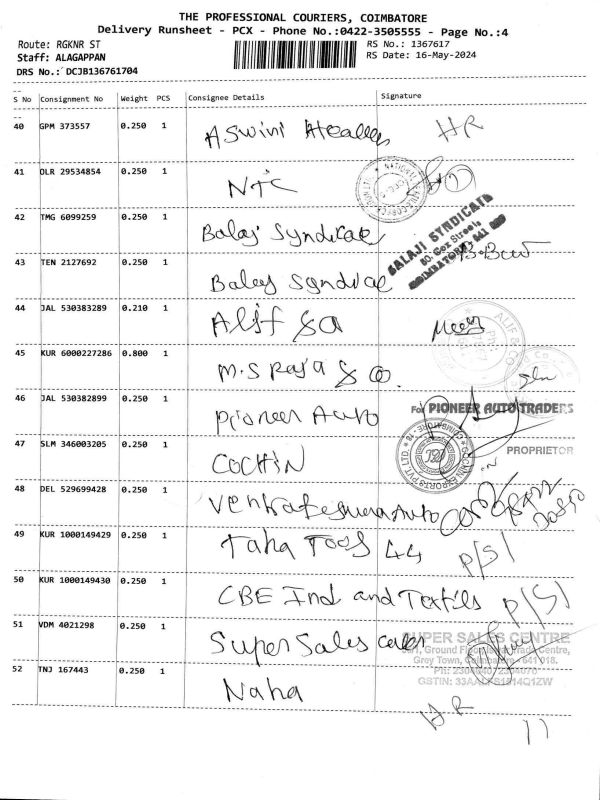 THE PROFESSIONAL COURIERS, COIMBATORE
Delivery Runsheet - PCX - Phone No.:0422-3505555 - Page No.:4
Route: RGKNR ST
RS No.: 1367617
Staff: ALAGAPPAN
RS Date: 16-May-2024
DRS No.: DCJB136761704
S No Consignment No Weight PCS Consignee Details Signature
40 GPM 373557 0.250 1 Aswini HR
41 OLR 29534854 0.250 1 NTC
42 TMG 6099259 0.250 1 Balaj Syndicate
BALAJI SYNDICATE
43 TEN 2127692 0.250 1 Balaj Syndicate
44 JAL 530383289 0.210 1 Alif &
ALIF & CO
45 KUR 6000227286 0.800 1 M.S Raja & Co.
46 JAL 530382899 0.250 1 Pioneer Auto
For PIONEER AUTO TRADERS
PROPRIETOR
47 SLM 346003205 0.250 1 COCHIN
COCHIN EXPORTS PVT. LTD. COIMBATORE
48 DEL 529699428 0.250 1 Auto
49 KUR 1000149429 0.250 1 Taha Tools 44 P/S/
50 KUR 1000149430 0.250 1 CBE Ind and Textils P/S/
51 VDM 4021298 0.250 1 Super Sales
SUPER SALES CENTRE
Ground Floor, Trade Centre,
Grey Town, Coimbatore - 641 018.
52 TNJ 167443 0.250 1 Naha HR